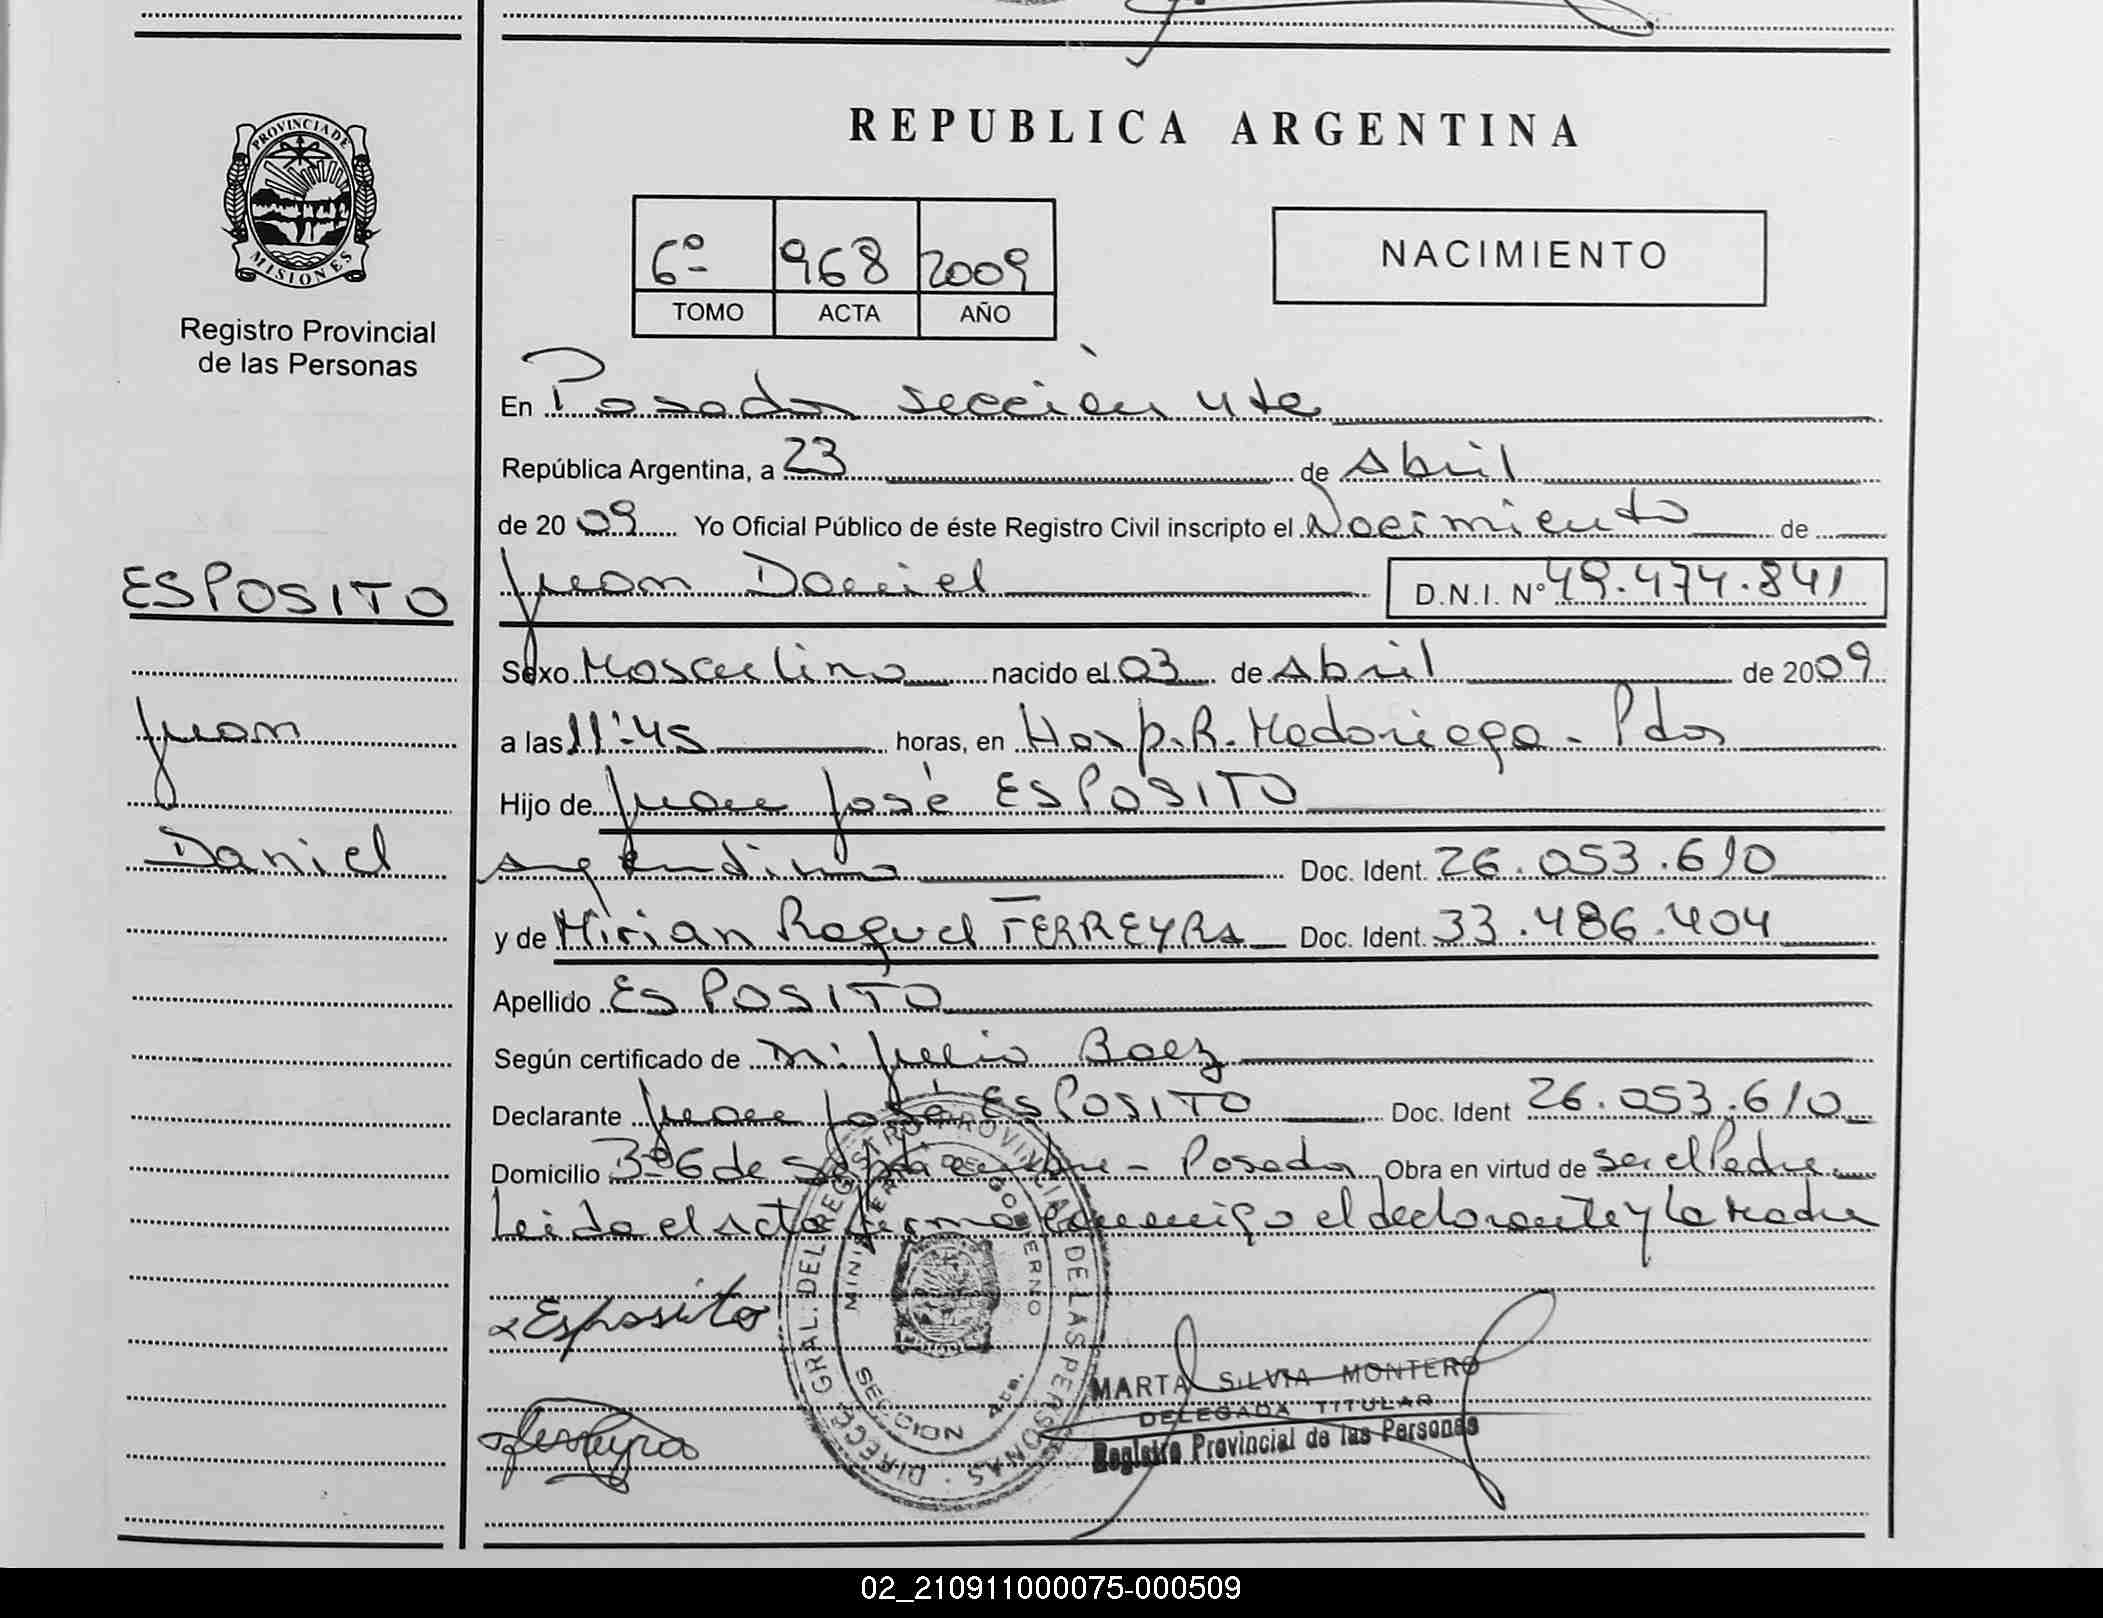 PROVINCIA DE
MISIONES
Registro Provincial
de las Personas
ESPOSITO
Juan
Daniel
REPUBLICA ARGENTINA
6º 968 2009
TOMO ACTA AÑO
NACIMIENTO
En Posadas sección 4ta
República Argentina, a 23 de Abril
de 2009 Yo Oficial Público de éste Registro Civil inscripto el Nacimiento de
Juan Daniel D.N.I. Nº 49.474.841
Sexo Masculino nacido el 03 de Abril de 2009
a las 11:45 horas, en Hosp. R. Madariaga - Pdas
Hijo de Juan José ESPOSITO
argentino Doc. Ident. 26.053.610
y de Mirian Raquel FERREYRA Doc. Ident. 33.486.404
Apellido ESPOSITO
Según certificado de Julio Baez
Declarante Juan José ESPOSITO Doc. Ident 26.053.610
Domicilio de Septiembre - Posadas Obra en virtud de ser el Padre
Leida el acta firma conmigo el declarante y la Madre
Esposito
Ferreyra
DIRECC. GRAL. DEL REGISTRO PROVINCIAL DE LAS PERSONAS
MINISTERIO DE GOBIERNO
SECCION 4ta.
MARTA SILVIA MONTERO
DELEGADA TITULAR
Registro Provincial de las Personas
02_210911000075-000509